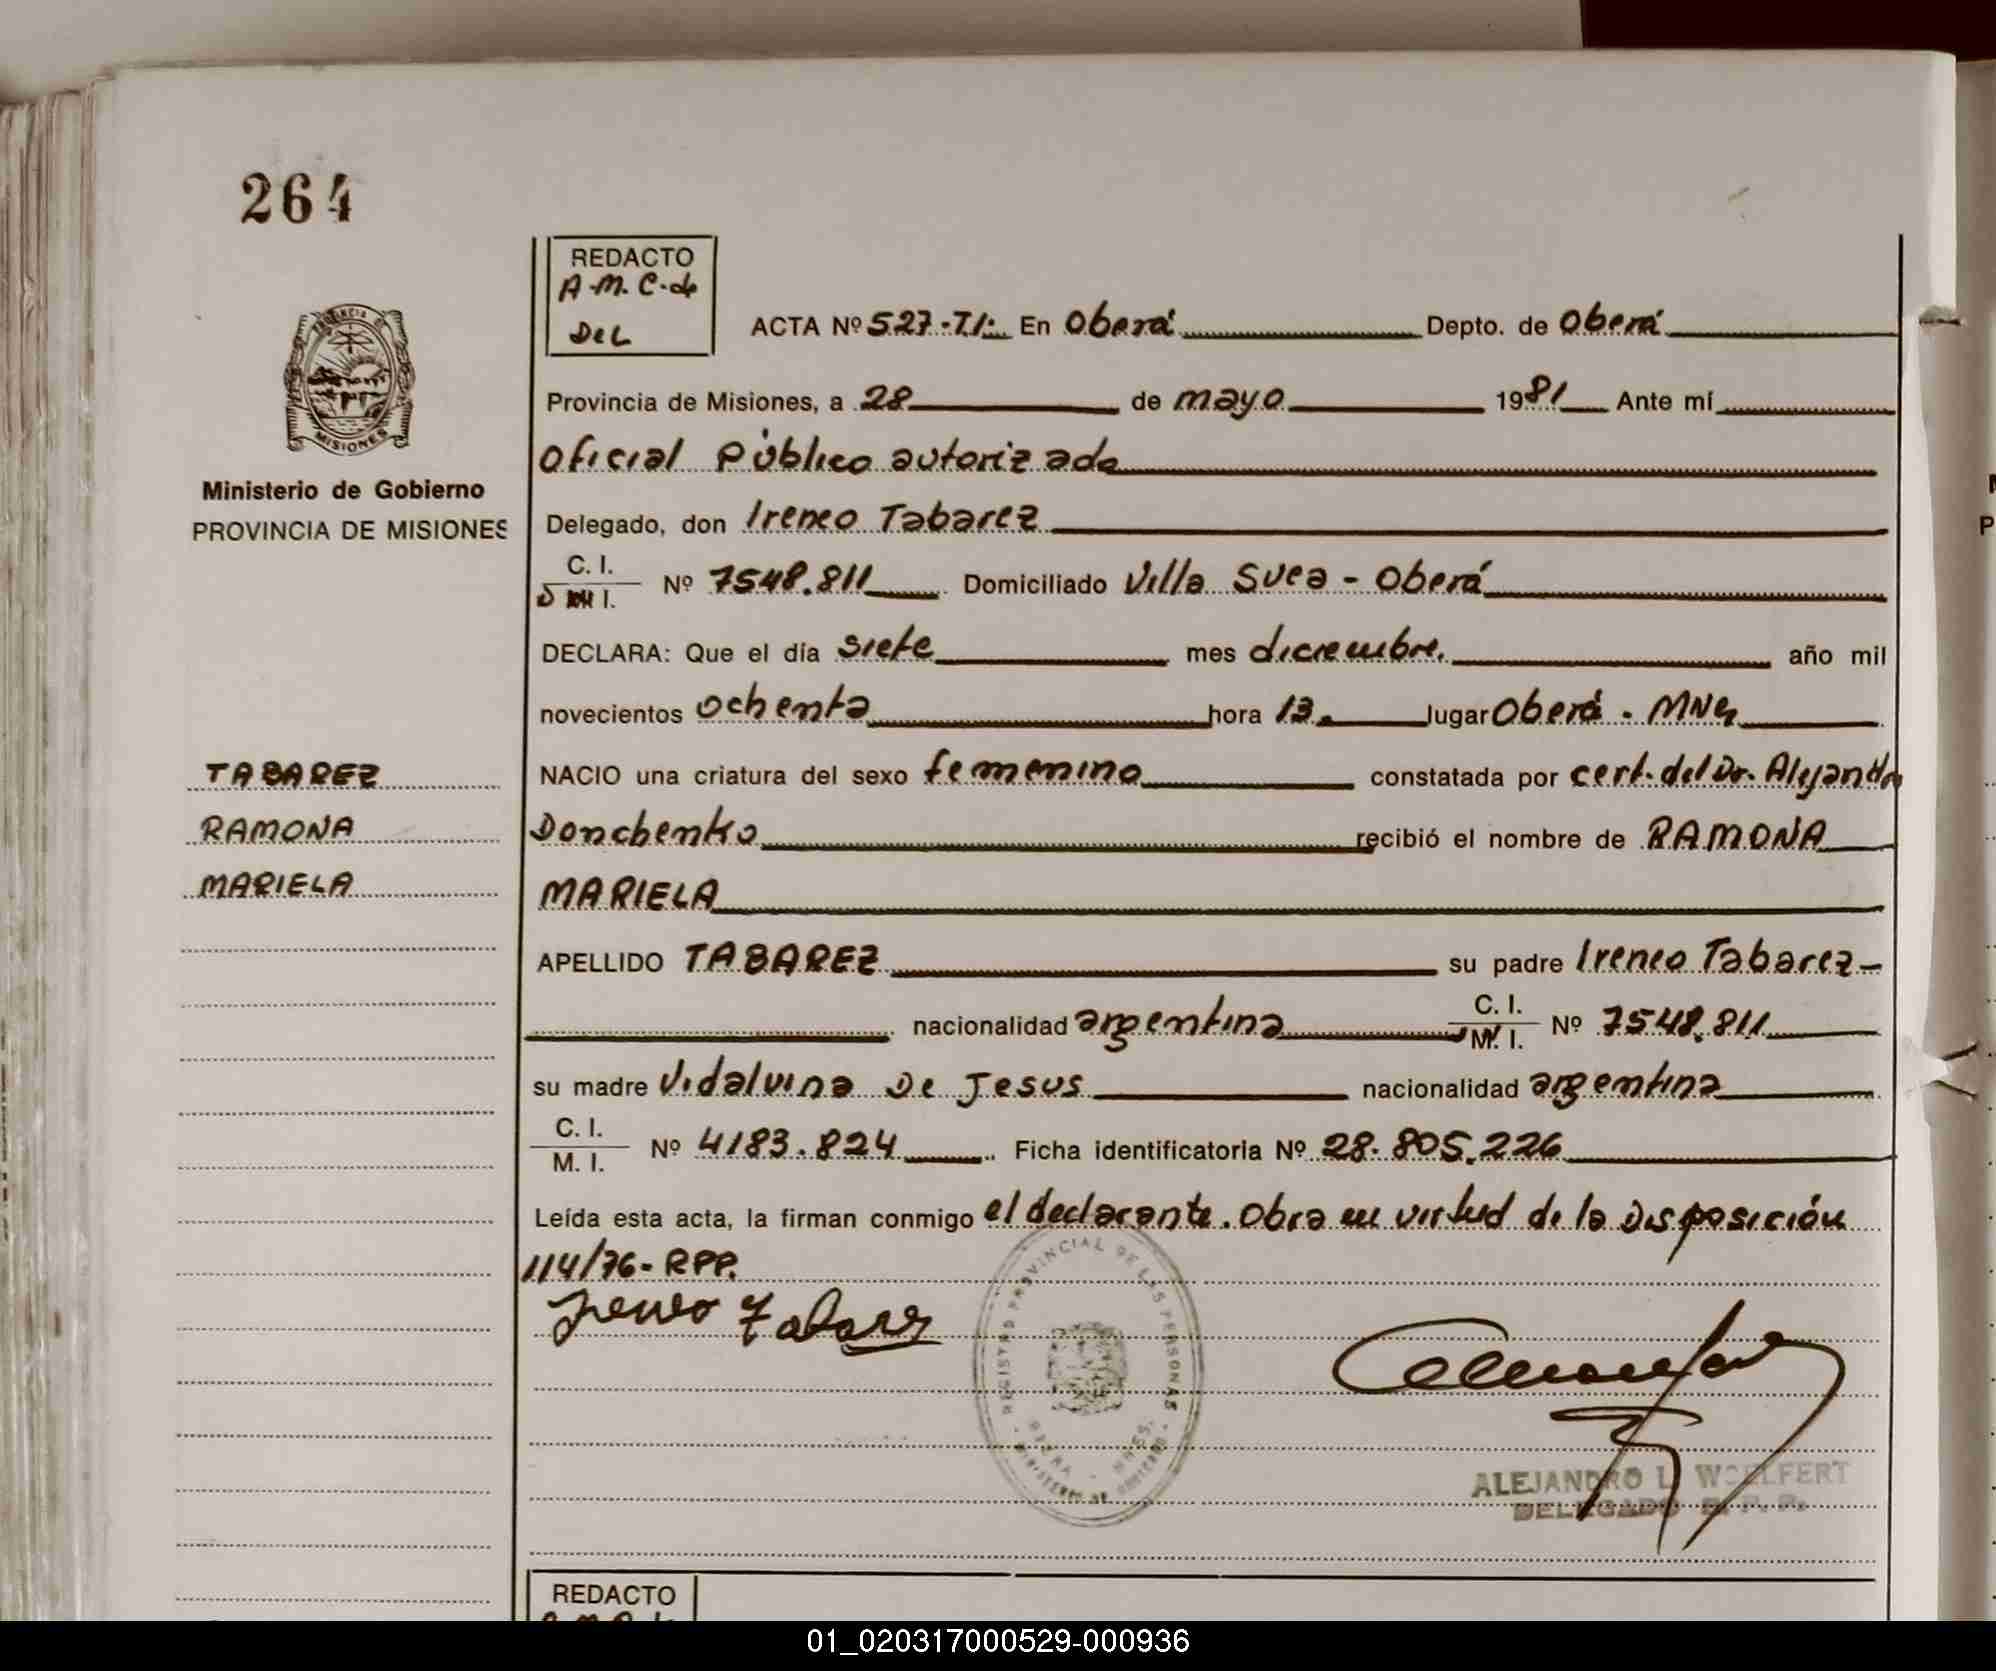 264
REDACTO
A.M.C. de
Del
ACTA Nº 527-T.I. En Oberá Depto. de Oberá
Provincia de Misiones, a 28 de mayo 1981 Ante mí
Oficial Público autorizado
Ministerio de Gobierno
PROVINCIA DE MISIONES
Delegado, don Ireneo Tabarez
C. I.
I. Nº 7548.811 Domiciliado Villa Svea - Oberá
DECLARA: Que el día siete mes diciembre. año mil
novecientos ochenta hora 13. lugar Oberá - MNes
TABAREZ
RAMONA
MARIELA
NACIO una criatura del sexo femenino constatada por cert. del Dr. Alejandro
Donchenko recibió el nombre de RAMONA
MARIELA
APELLIDO TABAREZ su padre Ireneo Tabarez-
nacionalidad argentina C. I.
M. I. Nº 7548.811
su madre Vidalvina De Jesus nacionalidad argentina
C. I.
M. I. Nº 4183.824 Ficha identificatoria Nº 28.805.226
Leída esta acta, la firman conmigo el declarante. Obra en virtud de la Disposición
114/76- RPP.
Ireneo Tabarez
REGISTRO PROVINCIAL DE LAS PERSONAS
ALEJANDRO L. WOELFERT
DELEGADO R. P. P.
REDACTO
01_020317000529-000936